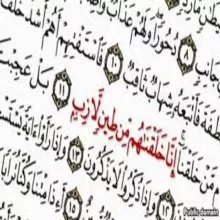 دُحُورًا وَلَهُمْ عَذَابٌ وَاصِ
فَأَتْبَعَهُ شِهَابٌ ثَاقِبٌ ١٠ فَٱسْتَفْتِهِمْ أَهُمْ أَشَدُّ خَلْقًا
مَّنْ خَلَقْنَآ إِنَّا خَلَقْنَٰهُم مِّن طِينٍ لَّازِبٍ ١١ بَلْ عَجِبْتَ
١٢ وَإِذَا ذُكِّرُوا۟ لَا يَذْكُرُونَ ١٣ وَإِذَا رَأَوْا۟ ءَايَةً يَسْتَسْ
أَءِذَا مِتْنَا وَكُنَّا تُرَابًا
Public domain